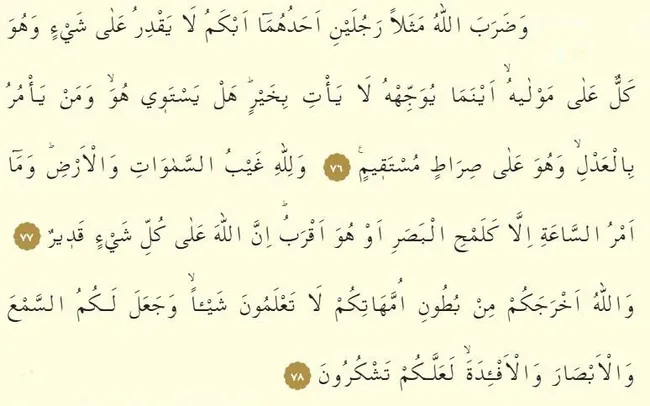 وَضَرَبَ اللّٰهُ مَثَلاً رَجُلَيْنِ اَحَدُهُمَٓا اَبْكَمُ لَا يَقْدِرُ عَلٰى شَيْءٍ وَهُوَ
كَلٌّ عَلٰى مَوْلٰيهُۙ اَيْنَمَا يُوَجِّهْهُ لَا يَأْتِ بِخَيْرٍۜ هَلْ يَسْتَوٖي هُوَۙ وَمَنْ يَأْمُرُ
بِالْعَدْلِۙ وَهُوَ عَلٰى صِرَاطٍ مُسْتَقٖيمٍۚ ٧٦ وَلِلّٰهِ غَيْبُ السَّمٰوَاتِ وَالْاَرْضِۜ وَمَٓا
اَمْرُ السَّاعَةِ اِلَّا كَلَمْحِ الْبَصَرِ اَوْ هُوَ اَقْرَبُۜ اِنَّ اللّٰهَ عَلٰى كُلِّ شَيْءٍ قَدٖيرٌ ٧٧
وَاللّٰهُ اَخْرَجَكُمْ مِنْ بُطُونِ اُمَّهَاتِكُمْ لَا تَعْلَمُونَ شَيْـٔاًۙ وَجَعَلَ لَكُمُ السَّمْعَ
وَالْاَبْصَارَ وَالْاَفْـِٔدَةَۙ لَعَلَّكُمْ تَشْكُرُونَ ٧٨